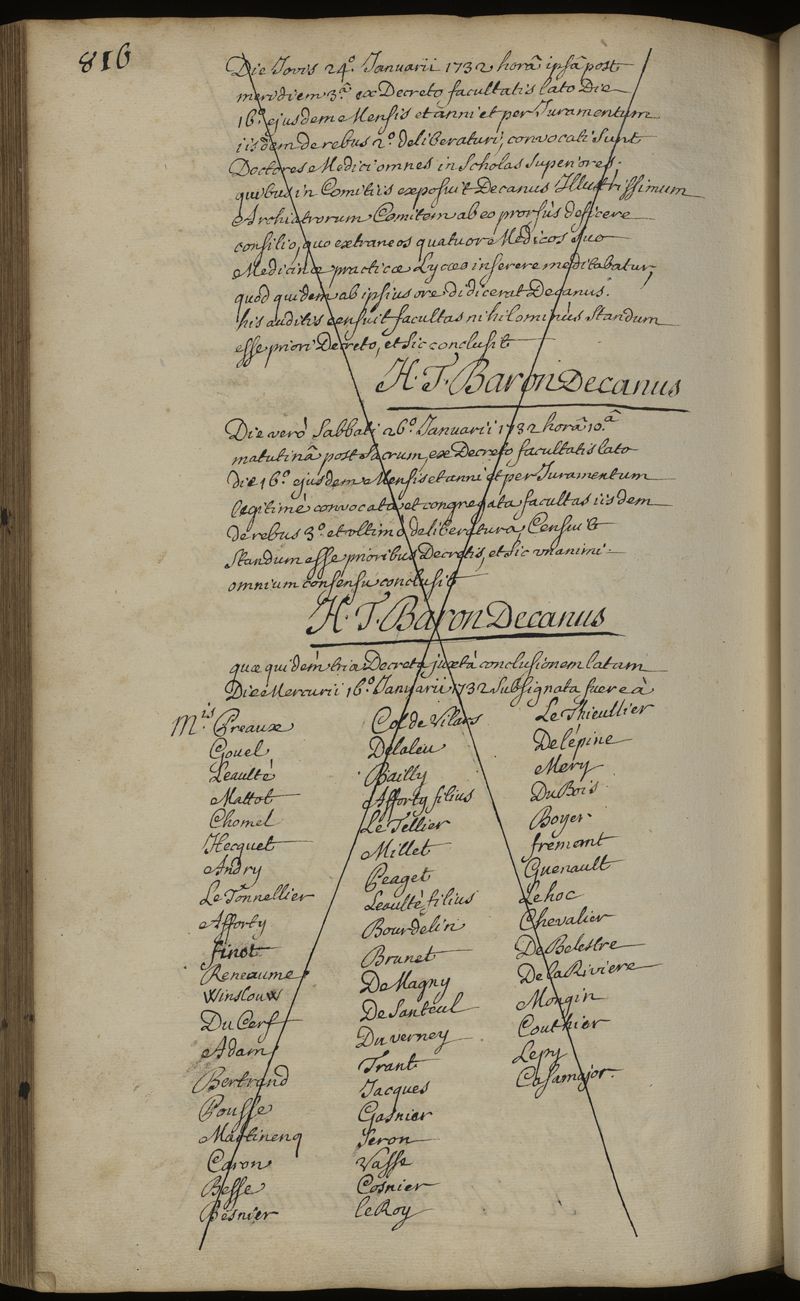 816
Die Jovis 24º. Januarii 1732 horâ ipsâ post
meridiem 3.ª ex Decreto facultatis lato Die
16º. ejusdem Mensis et anni et per Juramentum
iisdem de rebus 2º. deliberaturi, convocati sunt
Doctores Medici omnes in Scholas Superiores.
quibus in Comitiis exposuit Decanus Illustrissimum
Archiatrorum Comitem ab eo prorsùs desicere
consilio, quo extraneos quatuor Medicos suo
Medicinæ practicæ Lycæo inserere meditabatur,
quod quidem ab ipsius ore didicerat Decanus.
his auditis censuit facultas nihilominùs standum
esse priori Decreto, et sic conclusit
H. T. Baron Decanus
Die verò Sabbati 26º. Januarii 1732 horâ 10.ª
matutinâ post Sacrum, ex Decreto facultatis lato
die 16º. ejusdem Mensis et anni et per Juramentum
legitimè convocata et congregata facultas iisdem
de rebus 3º. et ultimò deliberatura, Censuit
Standum esse prioribus Decretis, et sic unanimi
omnium consensu conclusit
H. T. Baron Decanus
quæ quidem tria Decreta juxtà conclusionem latam
Die Mercurii 16º. Januarii 1732 subsignata fuere à
M.is Preaux
Gouel
Leaulté
Mattot
Chomel
Hecquet
Andry
Le Tonnellier
Afforty
finot
Reneaume
Winslouw
Du Cerf
Adam
Bertrand
Pousse
Martinenq
Caron
Besse
Besnier
Col de Vilars
Delaleu
Bailly
Afforty filius
Le Tellier
Millet
Peaget
Leaulté filius
Bourdelin
Brunet
De Magny
De Santeul
Duverney
Trant
Jacques
Gasnier
Seron
Vasse
Cosnier
le Roy
Le Thieullier
De lépine
Mery
Du Bois
Boyer
fremont
Guenault
Lehoc
Chevalier
De Belestre
De la Riviere
Mongin
Couthier
Lepy
Casamajor.